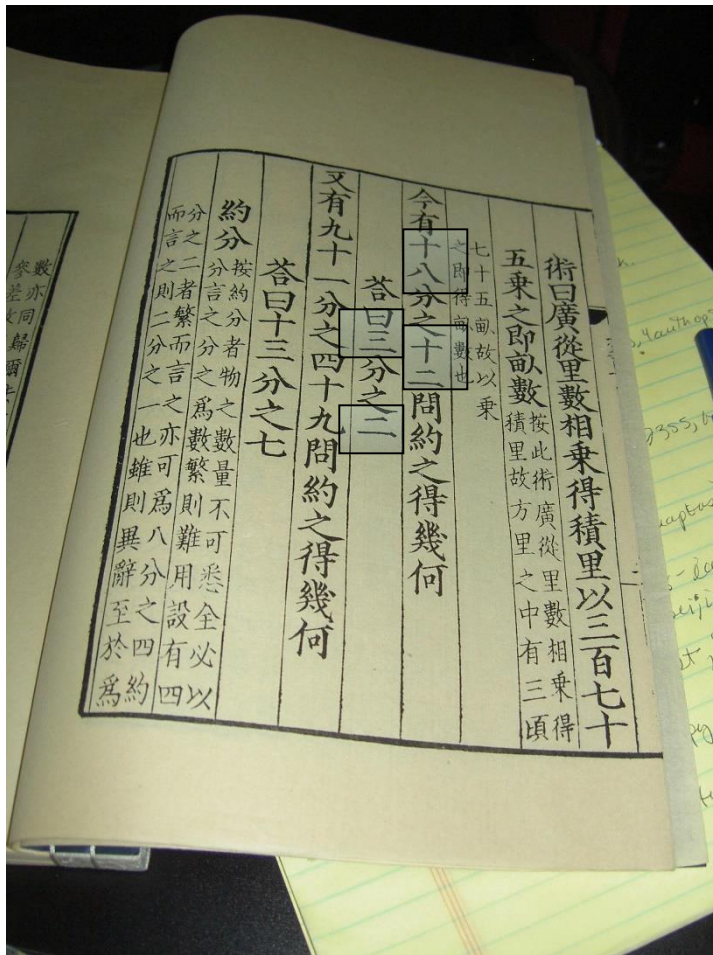 術曰廣從里數相乗得積里以三百七十
五乗之即畆數
按此術廣從里數相乗得
積里故方里之中有三頃
七十五畆故以乗
之即得畆數也
今有十八分之十二問約之得幾何
荅曰三分之二
又有九十一分之四十九問約之得幾何
荅曰十三分之七
約分
按約分者物之數量不可悉全必以
分言之分之爲數繁則難用設有四
分之二者繁而言之亦可爲八分之四約
而言之則二分之一也雖則異辭至於爲
數亦同歸爾
參差故